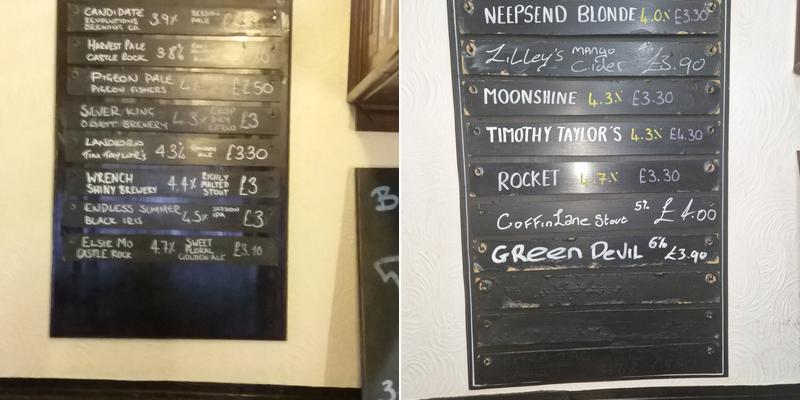 CANDIDATE 3.9% SESSION
REVOLUTIONS PALE
BREWING CO.
HARVEST PALE 3.8%
CASTLE ROCK
PIGEON PALE £2.50
PIGEON FISHERS
SILVER KING 4.3% CRISP DRY CITRUS £3
OSSETT BREWERY
LANDLORD 4.3% ALE £3.30
TIM TAYLOR'S
WRENCH 4.4% RICHLY MALTED STOUT £3
SHINY BREWERY
ENDLESS SUMMER 4.5% SESSION IPA £3
BLACK IRIS
ELSIE MO 4.7% SWEET FLORAL GOLDEN ALE £3.10
CASTLE ROCK
B
3
NEEPSEND BLONDE 4.0% £3.30
Lilley's MANGO Cider 4% £3.90
MOONSHINE 4.3% £3.30
TIMOTHY TAYLOR'S 4.3% £4.30
ROCKET 4.7% £3.30
Coffin Lane Stout 5% £4.00
GReen DeviL 6% £3.90